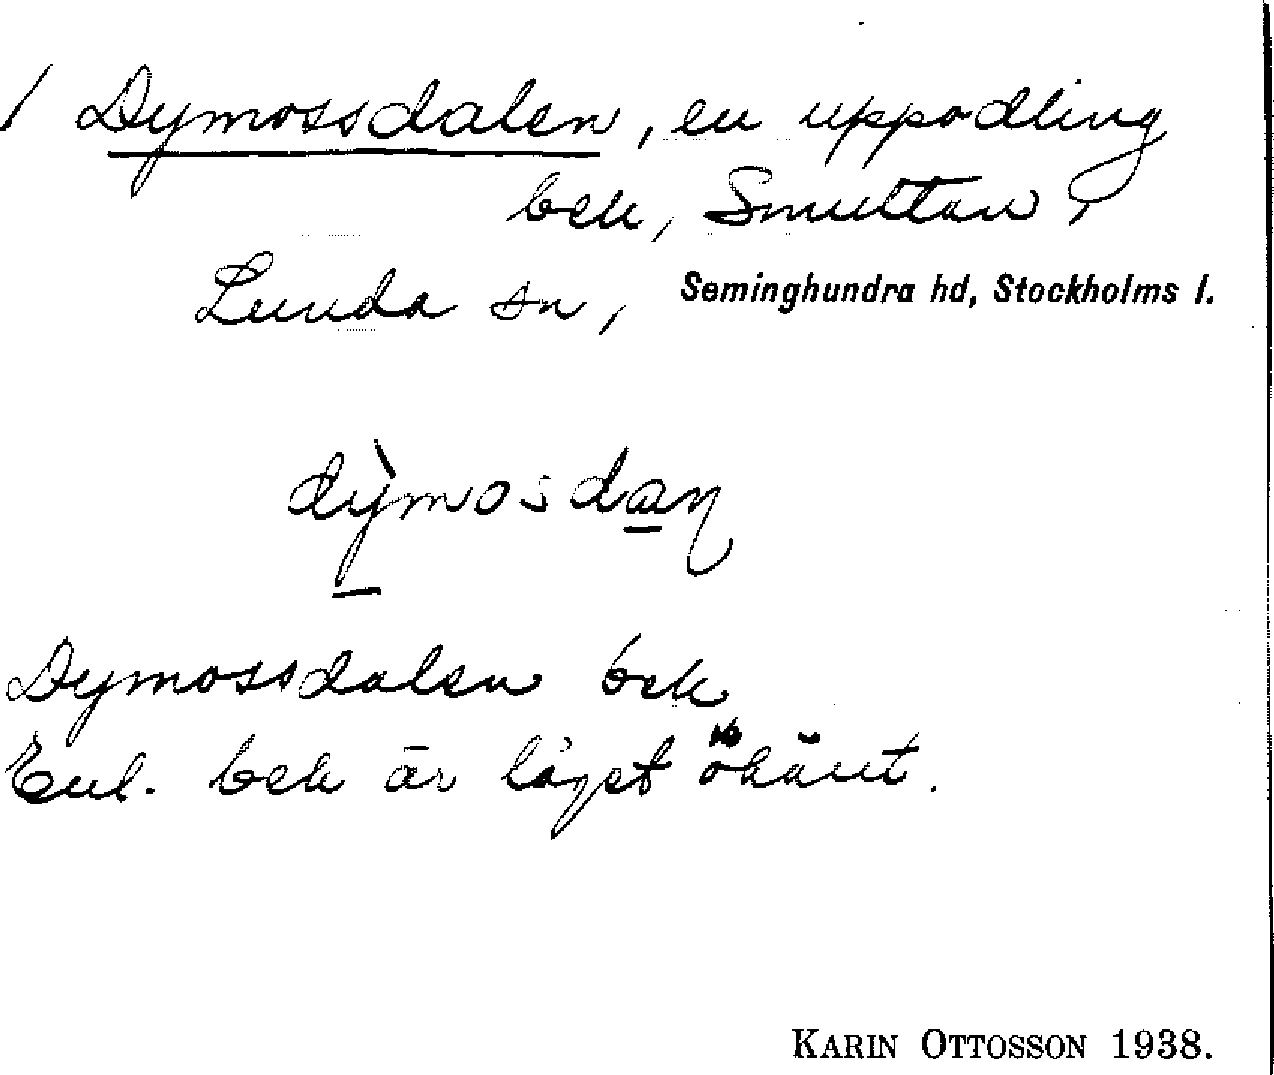 / Dymossdalen, en uppodling
bek, Smultan,
Lunda sn, Seminghundra hd, Stockholms l.
dỳmosdaņ
Dymossdalen bek
Enl. bek är läget okänt.
KARIN OTTOSSON 1938.